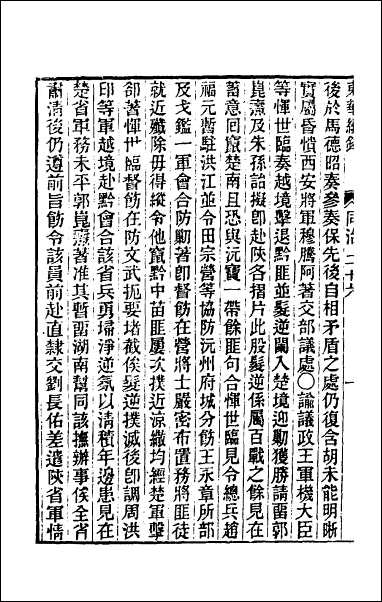 東華續錄 同治二十六 一
後於馬德昭奏參奏保先後自相矛盾之處仍復含胡未能明晰
實屬昏憒西安將軍穆騰阿著交部議處○諭議政王軍機大臣
等惲世臨奏越境擊退黔匪並髮逆闌入楚境迎勦獲勝請留郭
崑燾及朱孫詒擬卽赴陝各摺片此股髮逆係屬百戰之餘見在
蓄意回竄楚南且恐與沅寶一帶餘匪句合惲世臨見令總兵趙
福元暫駐洪江並令田宗營等協防沅州府城分飭王永章所部
及戈鑑一軍會合防勦著卽督飭在營將士嚴密布置務將匪徒
就近殲除毋得縱令他竄黔中苗匪屢次撲近凉繖均經楚軍擊
卻著惲世臨督飭在防文武扼要堵截俟髮逆撲滅後卽調周洪
印等軍越境赴黔會合該省兵勇埽淨逆氛以淸積年邊患見在
楚省軍務未平郭崑燾著准其暫留湖南幫同該撫辦事俟全省
肅清後仍遵前旨飭令該員前赴直隸交劉長佑差遣陝省軍情